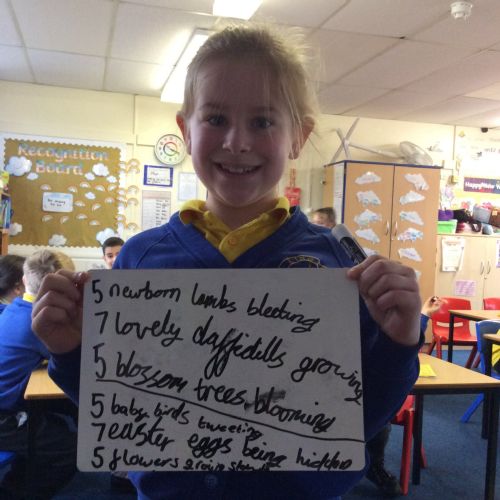 Recognition
Board
Happy
5 newborn lambs bleeting
7 lovely daffidills growing
5 blossom trees blooming
5 baby birds tweeting
7 easter eggs being hidden
5 flowers